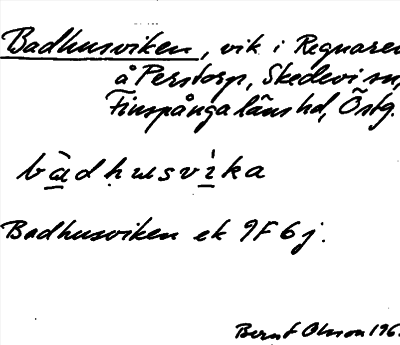 Badhusviken, vik i Regnaren
å Perstorp, Skedevi sn,
Finspånga läns hd, Östg.
bàdhusvìka
Badhusviken ek 9F 6j.
Bernt Olsson 196